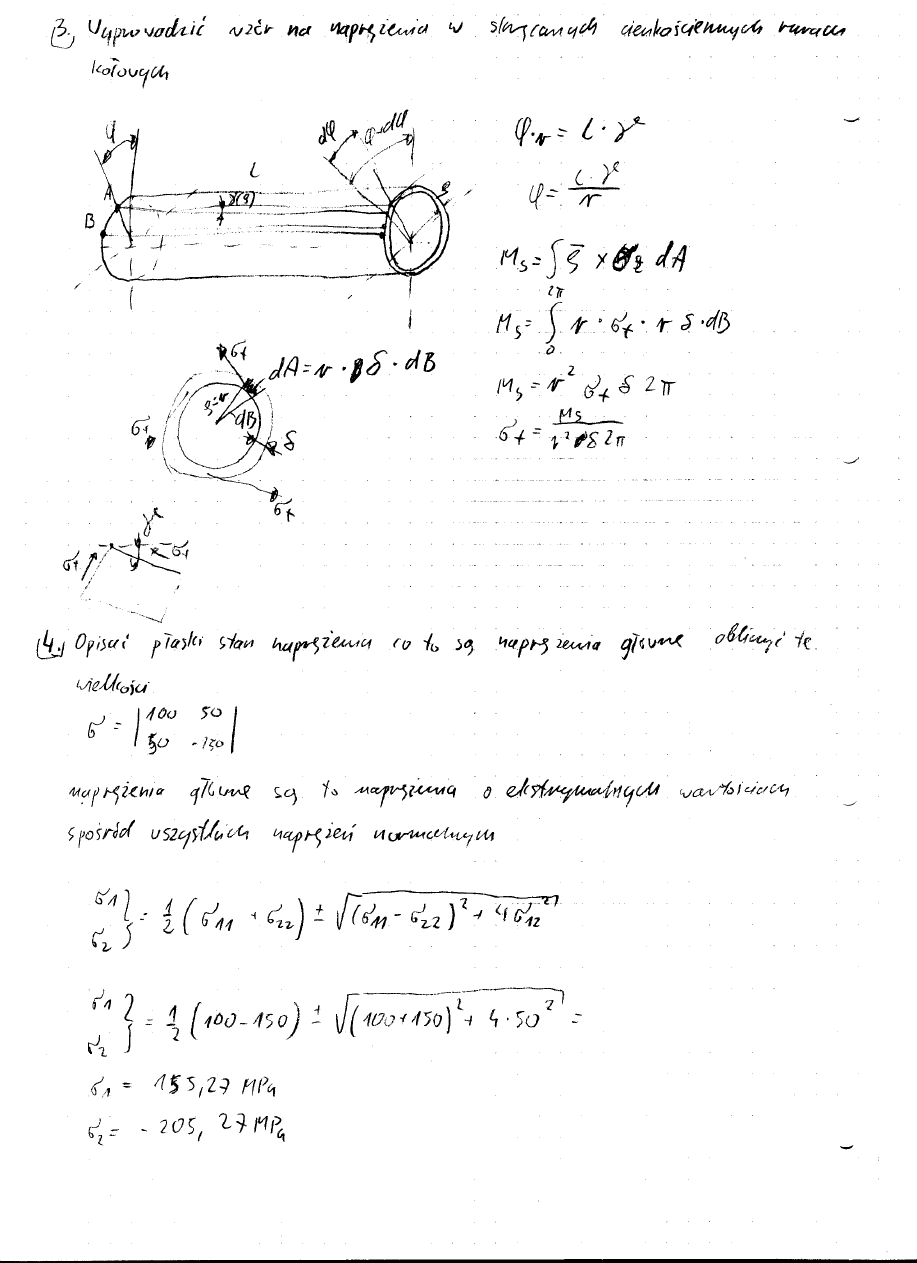 3. Wyprowadzić wzór na naprężenia w skręcanych cienkościennych rurach
kołowych
φ
dφ
φ+dφ
L
A
γ(ρ)
ρ
B
φ·r = L·γ
φ = L·γ / r
Ms = ∫ ρ × σt dA
Ms = ∫₀^2π r·σt·r δ·dB
Ms = r² σt δ 2π
σt = Ms / r² δ 2π
σt
dA = r·δ·dB
ρ=r
dB
σt
δ
σt
γ
σt
σt
4. Opisać płaski stan naprężenia co to są naprężenia główne obliczyć te
wielkości
σ = | 100 50 |
| 50 -150 |
naprężenia główne są to naprężenia o ekstrymalnych wartościach
spośród wszystkich naprężeń normalnych
σ1
σ2 } = 1/2 (σ11 + σ22) ± √((σ11 - σ22)² + 4σ12²)
σ1
σ2 } = 1/2 (100-150) ± √((100+150)² + 4·50²) =
σ1 = 155,27 MPa
σ2 = -205,27 MPa